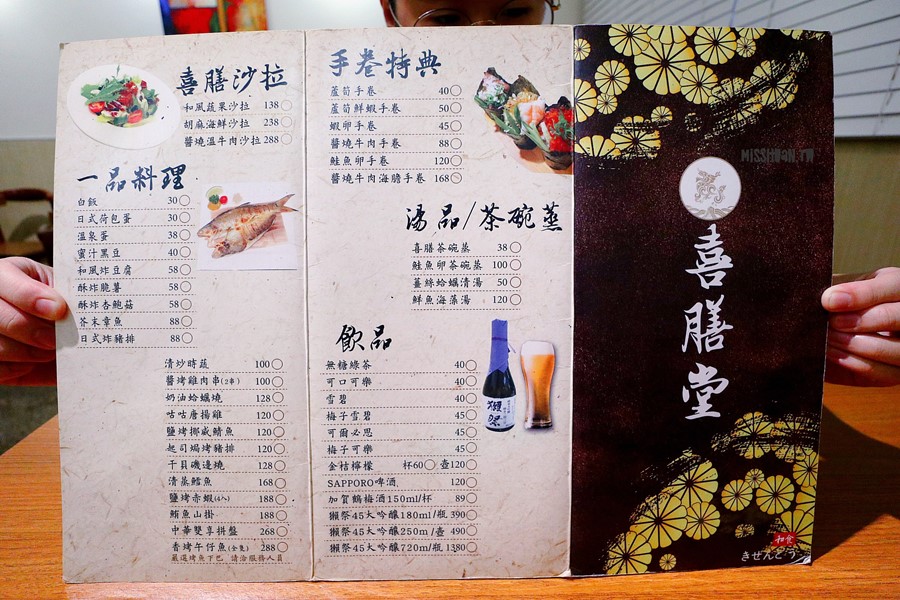 喜膳沙拉
和風蔬果沙拉 138
胡麻海鮮沙拉 238
醬燒溫牛肉沙拉 288
一品料理
白飯 30
日式荷包蛋 30
溫泉蛋 38
蜜汁黑豆 40
和風炸豆腐 58
酥炸脆薯 58
酥炸杏鮑菇 58
芥末章魚 88
日式炸豬排 88
清炒時蔬 100
醬烤雞肉串(2串) 100
奶油蛤蠣燒 128
咕咕唐揚雞 120
鹽烤挪威鯖魚 120
起司焗烤豬排 120
干貝磯邊燒 128
清蒸鱈魚 168
鹽烤赤蝦(4入) 188
鮪魚山掛 188
中華雙享拼盤 268
香烤午仔魚(全隻) 288
嚴選烤魚下巴 請洽服務人員
手卷特典
蘆筍手卷 40
蘆筍鮮蝦手卷 50
蝦卵手卷 45
醬燒牛肉手卷 88
鮭魚卵手卷 120
醬燒牛肉海膽手卷 168
湯品/茶碗蒸
喜膳茶碗蒸 38
鮭魚卵茶碗蒸 100
薑絲蛤蠣清湯 50
鮮魚海藻湯 120
飲品
無糖綠茶 40
可口可樂 40
雪碧 40
梅子雪碧 45
可爾必思 45
梅子可樂 45
金桔檸檬 杯60 壺120
SAPPORO啤酒 120
加賀鶴梅酒150ml/杯 89
獺祭45大吟釀180ml/瓶 390
獺祭45大吟釀250m/壺 490
獺祭45大吟釀720m/瓶 1380
獺祭
MISSHUAN.TW
喜膳堂
和食
きぜんどう